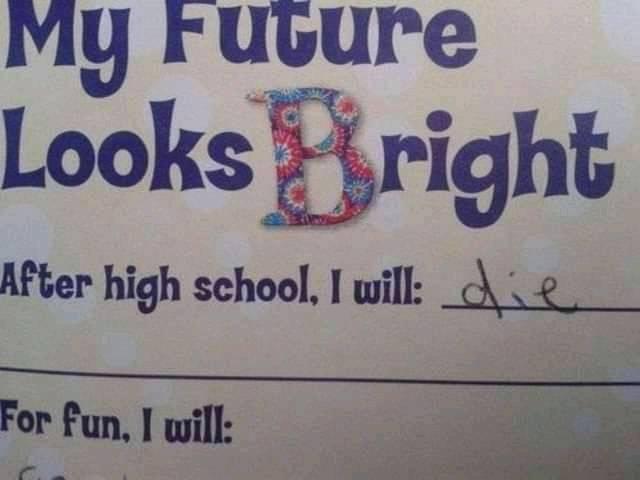 My Future
Looks Bright
After high school, I will: die
For fun, I will: